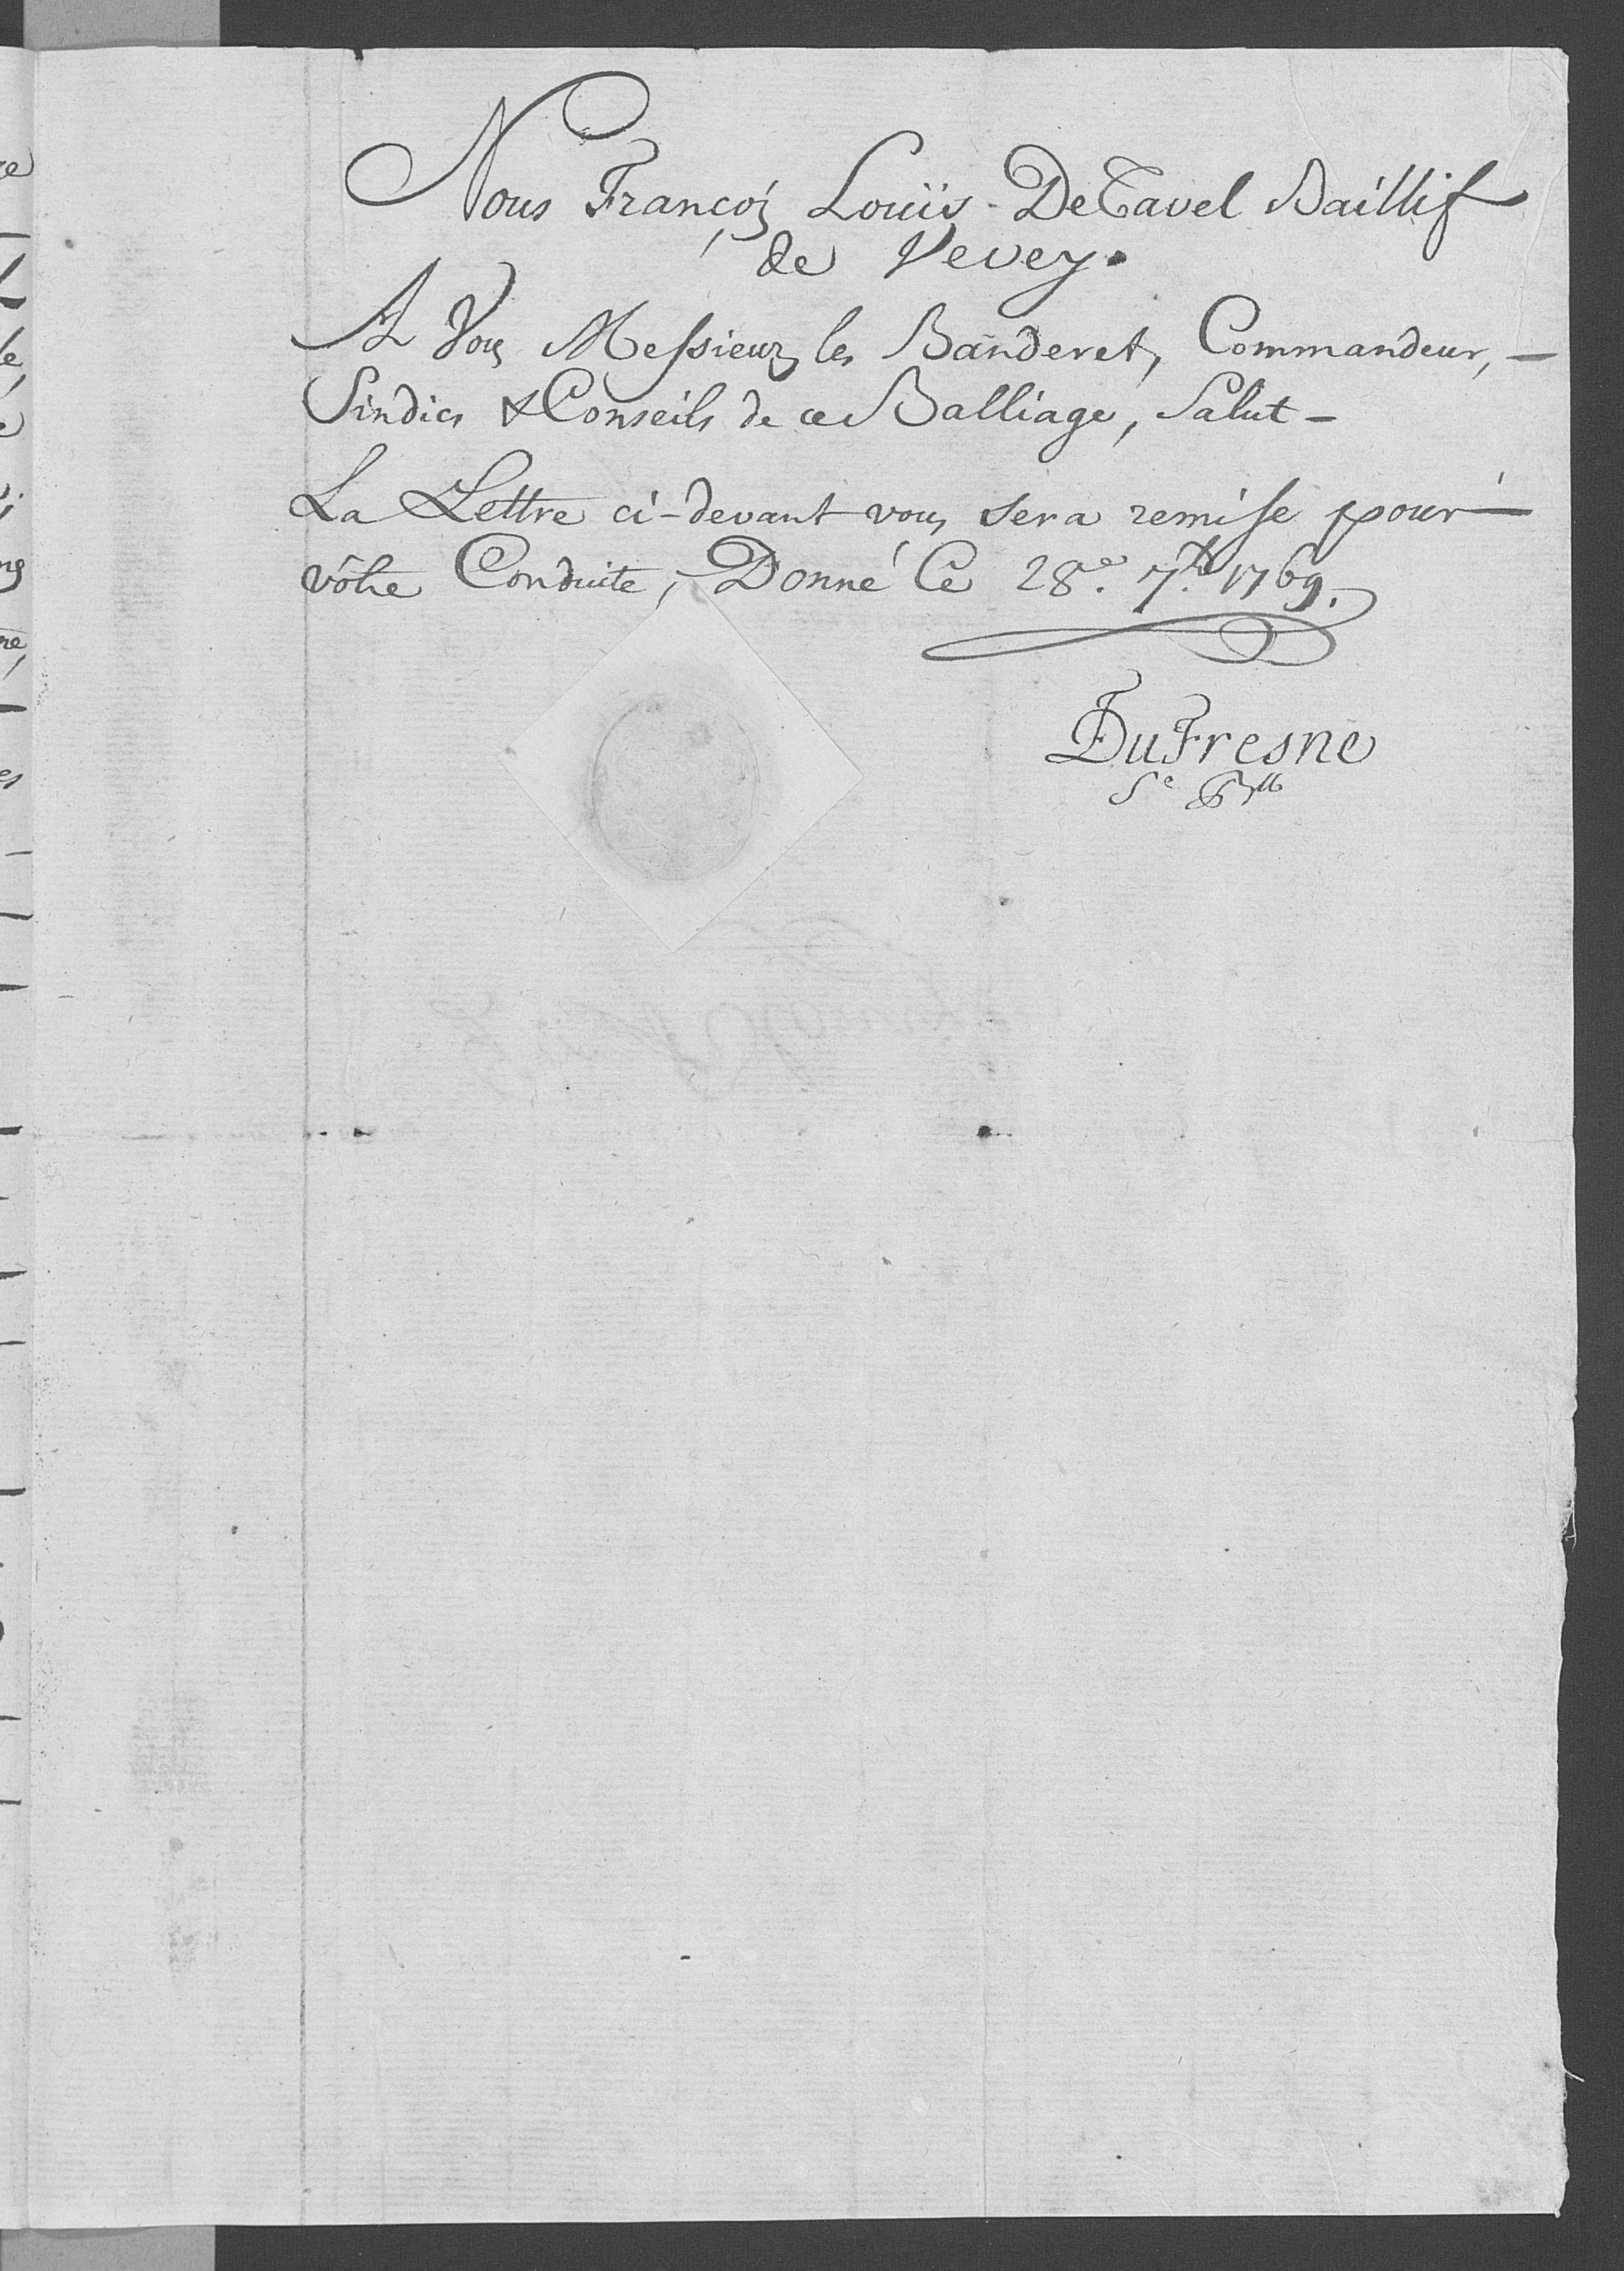 Nous François Louïs DeTavel Baillif
de Vevey.
A Vous Messieurs les Banderet, Commandeur, -
Sindics & Conseils de ce Balliage, Salut -
La Lettre ci-devant vous sera remise pour
vôtre Conduite, Donné Ce 28.e 7.b 1769.
DuFresne